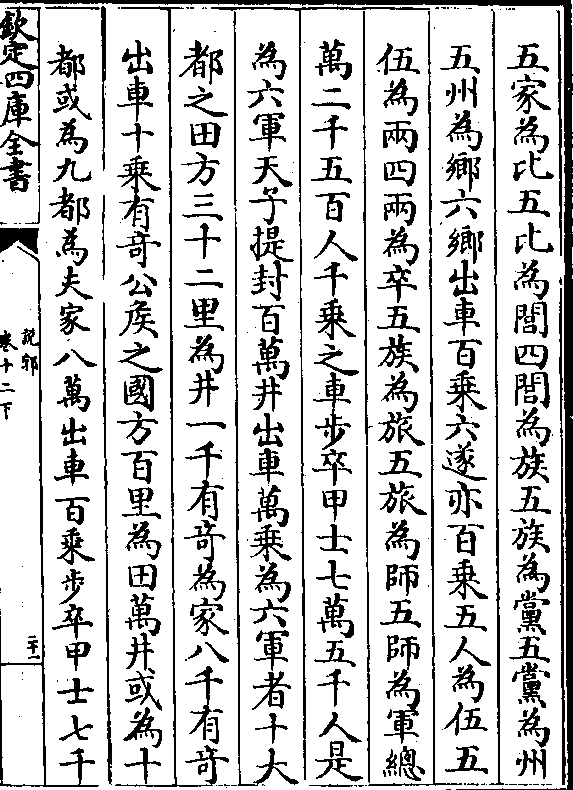 五家為比五比為閭四閭為族五族為黨五黨為州
五州為鄉六鄉出車百乗六遂亦百乗五人為伍五
伍為兩四兩為卒五族為旅五旅為師五師為軍總
萬二千五百人千乗之車步卒甲士七萬五千人是
為六軍天子提封百萬井出車萬乗為六軍者十大
都之田方三十二里為井一千有竒為家八千有竒
出車十乗有竒公侯之國方百里為田萬井或為十
都或為九都為夫家八萬出車百乗步卒甲士七千
欽定四庫全書
說郛
卷十二下
二十一